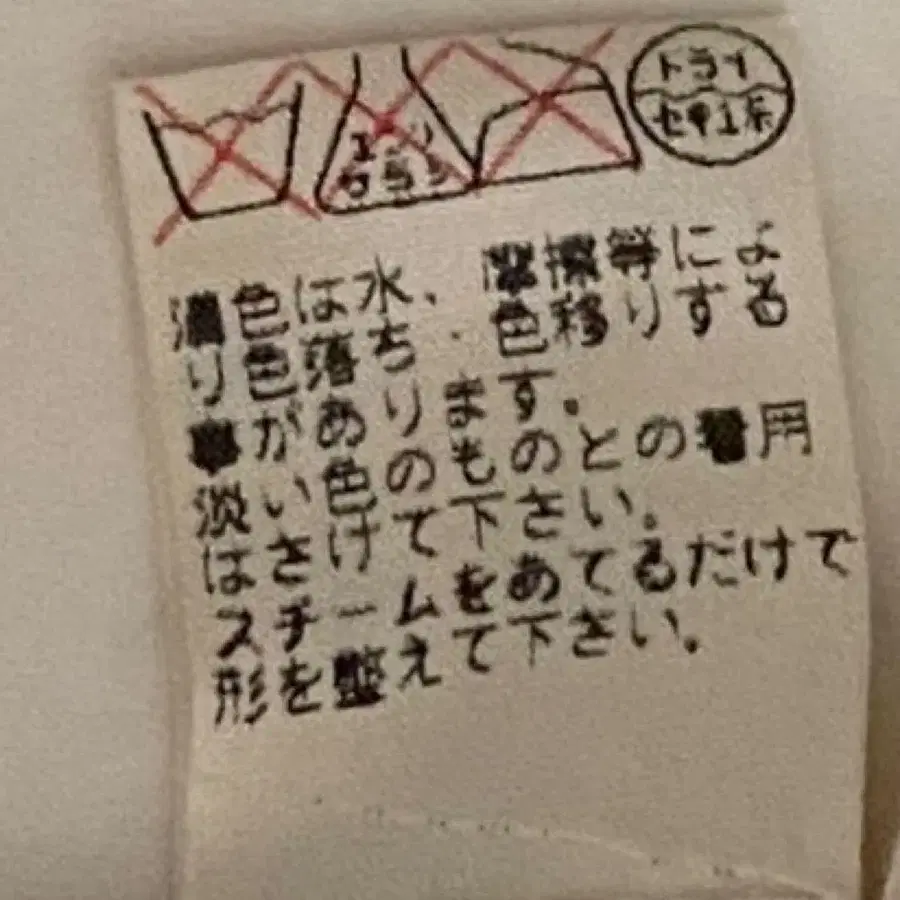 エンソ
サラシ
ドライ
セキユ系
濃色は水、摩擦等によ
り色落ち・色移りする
事があります。
淡い色のものとの着用
はさけて下さい。
スチームをあてるだけで
形を整えて下さい。